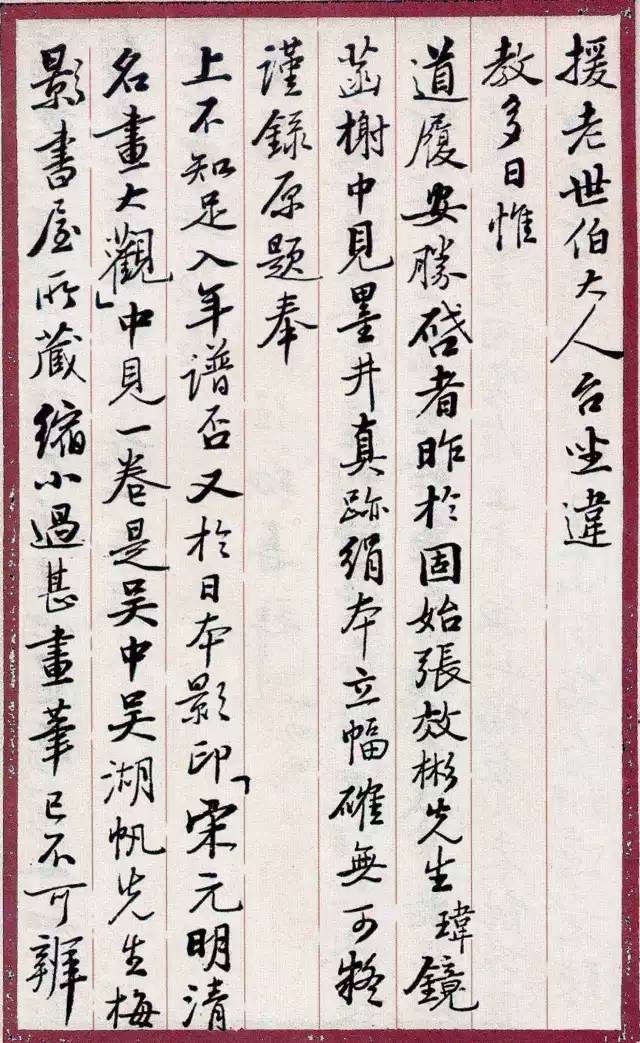 援老世伯大人台坐違
教多日惟
道履安勝啓者昨於固始張效彬先生瑋鏡
菡榭中見墨井真跡絹本立幅確無可疑
謹錄原題奉
上不知足入年谱否又於日本影印「宋元明清
名畫大觀」中見一卷是吴中吴湖帆先生梅
影書屋所藏縮小過甚畫筆已不可辨